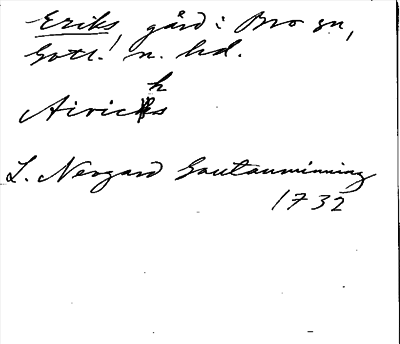 Eriks, gård i Bro sn,
Gotl. n. hd.
Airichs
L. Nergard Gautauminning
1732